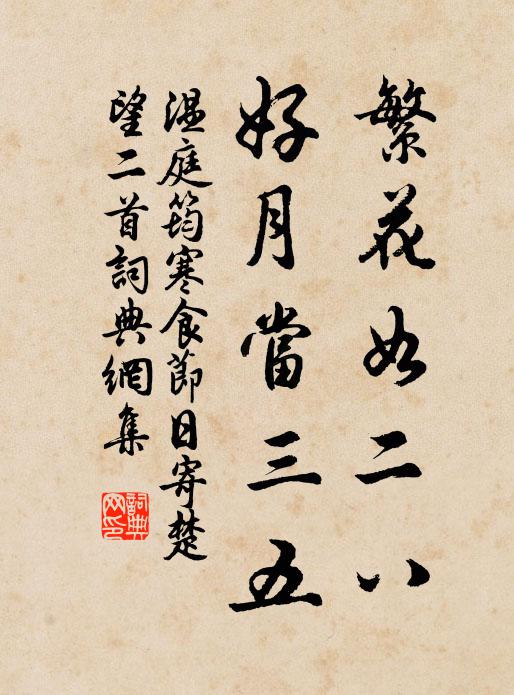 繁花如二八
好月當三五
温庭筠寒食節日寄楚
望二首詞典網集
詞典
网印